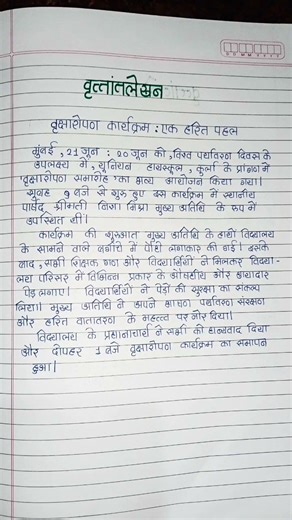 वृत्तांतलेखन
वृक्षारोपण कार्यक्रम : एक हरित पहल
मुंबई , 21 जून : 20 जून को , विश्व पर्यावरण दिवस के
उपलक्ष्य में , यूनियन हायस्कूल , कुर्ला के प्रांगण में
'वृक्षारोपण समारोह' का भव्य आयोजन किया गया।
सुबह 9 बजे से शुरू हुए इस कार्यक्रम में स्थानीय
पार्षद श्रीमती मिश्रा मुख्य अतिथि के रूप में
उपस्थित थीं।
कार्यक्रम की शुरुआत मुख्य अतिथि के हाथों विद्यालय
के सामने वाले बगीचे में पौधा लगाकर की गई। इसके
बाद , सभी शिक्षक गण और विद्यार्थियों ने मिलकर विद्या-
लय परिसर में विभिन्न प्रकार के औषधीय और छायादार
पेड़ लगाए। विद्यार्थियों ने पेड़ों की सुरक्षा का संकल्प
लिया। मुख्य अतिथि ने अपने भाषण पर्यावरण संरक्षण
और हरित वातावरण के महत्त्व पर जोर दिया।
विद्यालय के प्रधानाचार्य ने सभी को धन्यवाद दिया
और दोपहर 1 बजे वृक्षारोपण कार्यक्रम का समापन
हुआ।